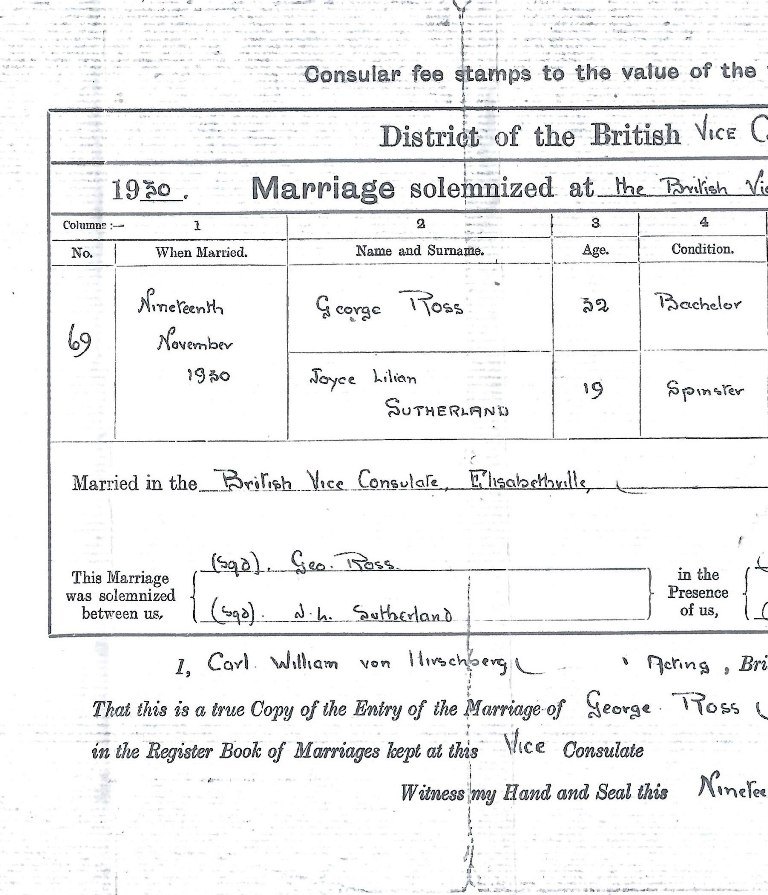 Consular fee stamps to the value of the
District of the British VICE C
1930. Marriage solemnized at the British Vic
Columns :— 1 2 3 4
No. When Married. Name and Surname. Age. Condition.
69 Nineteenth November 1930 George Ross 32 Bachelor
Joyce Lilian SUTHERLAND 19 Spinster
Married in the British Vice Consulate, Elisabethville,
This Marriage was solemnized between us, (sgd). Geo. Ross. in the Presence of us,
(sgd). J. L. Sutherland
I, Carl William von Hirschberg Acting, Bri
That this is a true Copy of the Entry of the Marriage of George Ross
in the Register Book of Marriages kept at this Vice Consulate
Witness my Hand and Seal this Ninetee